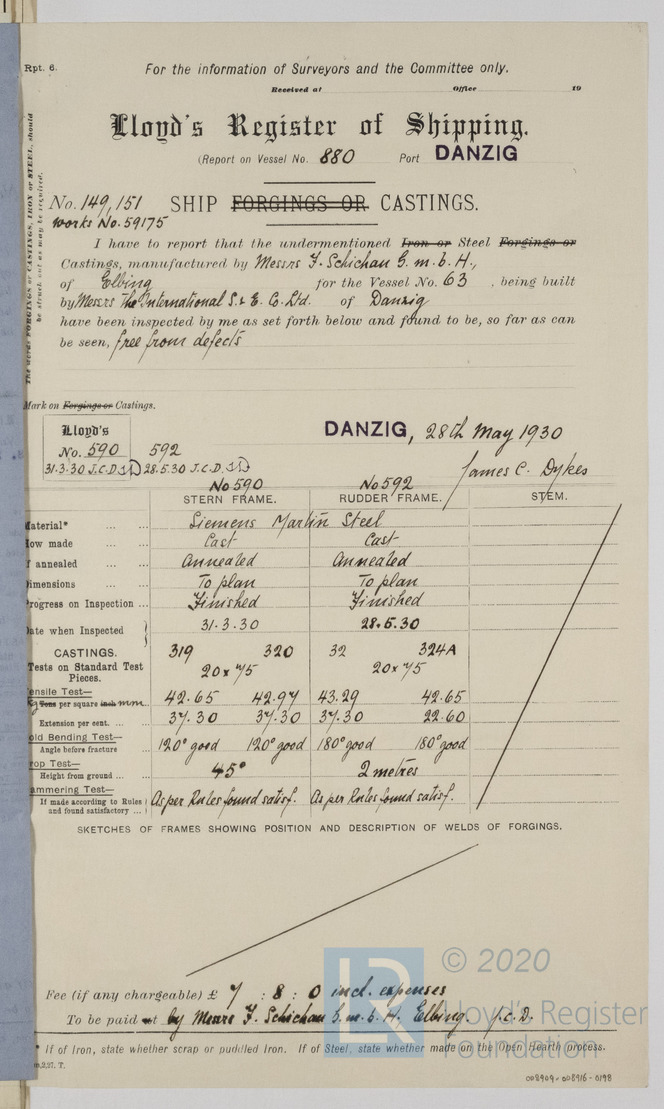 Rpt. 6.
For the information of Surveyors and the Committee only.
Received at Office 19
Lloyd's Register of Shipping.
(Report on Vessel No. 880 Port DANZIG
No. 149,151 SHIP FORGINGS OR CASTINGS.
Works No. 59175
The words FORGINGS or CASTINGS, IRON or STEEL, should be struck out as may be required.
I have to report that the undermentioned Iron or Steel Forgings or
Castings, manufactured by Messrs F. Schichau G.m.b.H.,
of Elbing for the Vessel No. 63, being built
by Messrs The International S. & E. Co. Ltd. of Danzig
have been inspected by me as set forth below and found to be, so far as can
be seen, free from defects
Mark on Forgings or Castings.
Lloyd's
No. 590 592
31.3.30 J.C.D. 28.5.30 J.C.D.
DANZIG, 28th May 1930
James C. Dykes
No 590 No 592
STERN FRAME. RUDDER FRAME. STEM.
Material* ... ... Siemens Martin Steel
How made ... ... Cast Cast
If annealed ... ... Annealed Annealed
Dimensions ... ... To plan To plan
Progress on Inspection ... Finished Finished
Date when Inspected 31.3.30 28.5.30
CASTINGS. 319 320 32 324A
Tests on Standard Test Pieces. 20 x 75 20 x 75
Tensile Test—
Kg Tons per square inch mm. 42.65 42.97 43.29 42.65
Extension per cent. ... 37.30 37.30 37.30 22.60
Cold Bending Test—
Angle before fracture 120° good 120° good 180° good 180° good
Drop Test—
Height from ground ... ... 45° 2 metres
Hammering Test—
If made according to Rules and found satisfactory ... ... As per Rules found satisf. As per Rules found satisf.
SKETCHES OF FRAMES SHOWING POSITION AND DESCRIPTION OF WELDS OF FORGINGS.
Fee (if any chargeable) £ 7 : 8 : 0 incl. expenses
To be paid by Messrs F. Schichau G.m.b.H. Elbing. J.C.D.
* If of Iron, state whether scrap or puddled Iron. If of Steel, state whether made on the Open Hearth process.
LR
© 2020
Lloyd's Register
Foundation
008909-008916-0198